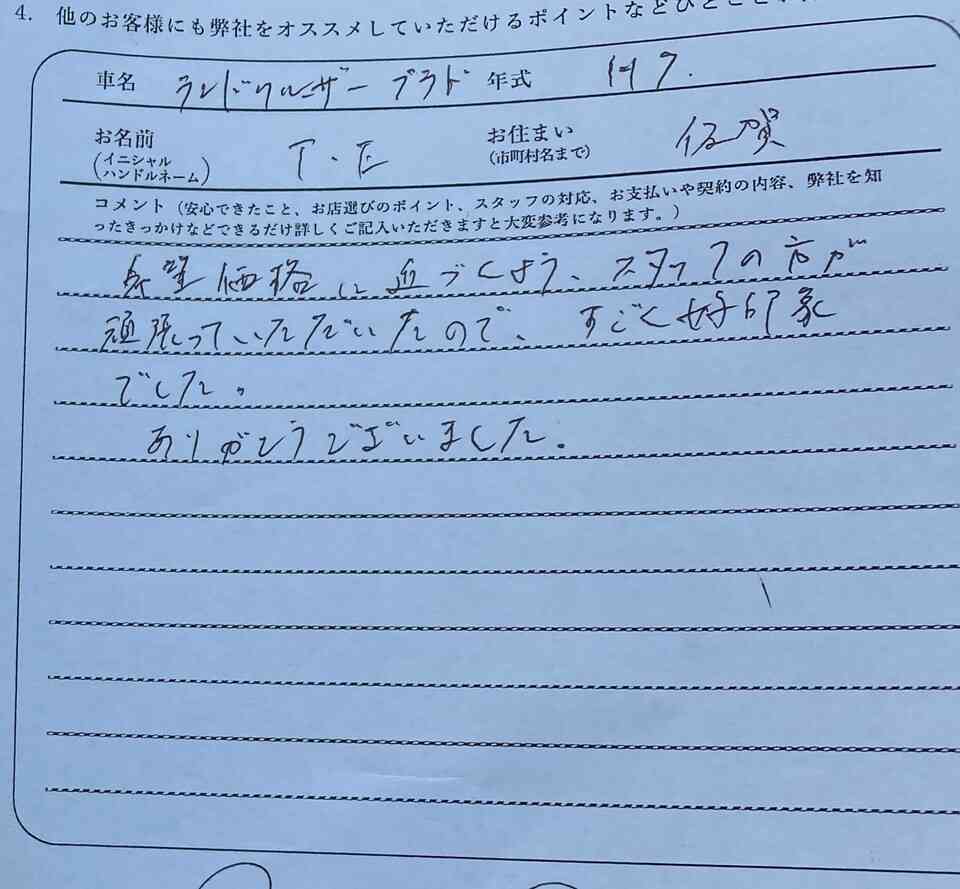 4. 他のお客様にも弊社をオススメしていただけるポイントなどひとこと
車名 ランドクルーザー プラド 年式 H9.
お名前 (イニシャル ハンドルネーム) T・E お住まい (市町村名まで) 佐賀
コメント（安心できたこと、お店選びのポイント、スタッフの対応、お支払いや契約の内容、弊社を知
ったきっかけなどできるだけ詳しくご記入いただきますと大変参考になります。）
希望価格に近づくよう、スタッフの方が
頑張っていただいたので、すごく好印象
でした。
ありがとうございました。